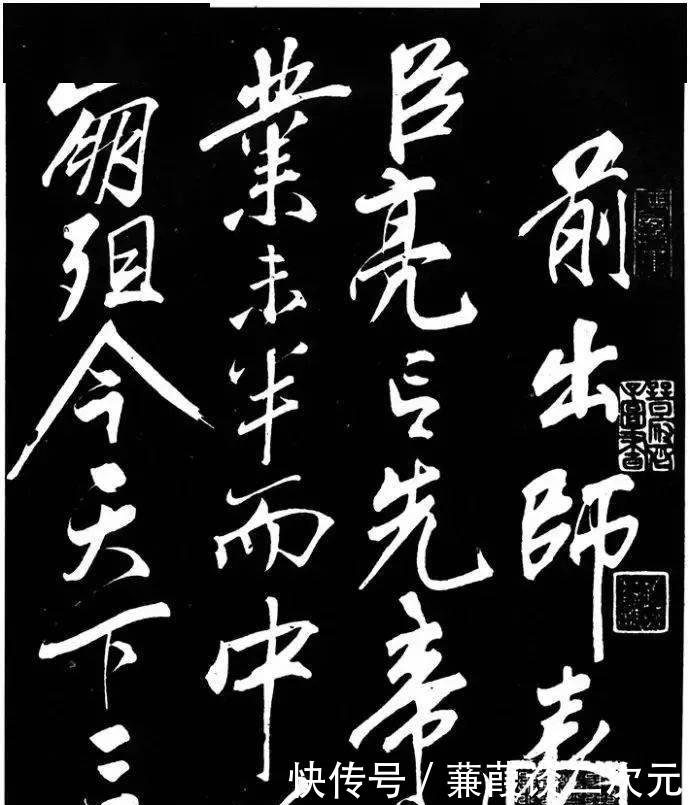 前出師表
臣亮言先帝
業未半而中
崩殂今天下三
快传号 / 蒹葭二次元